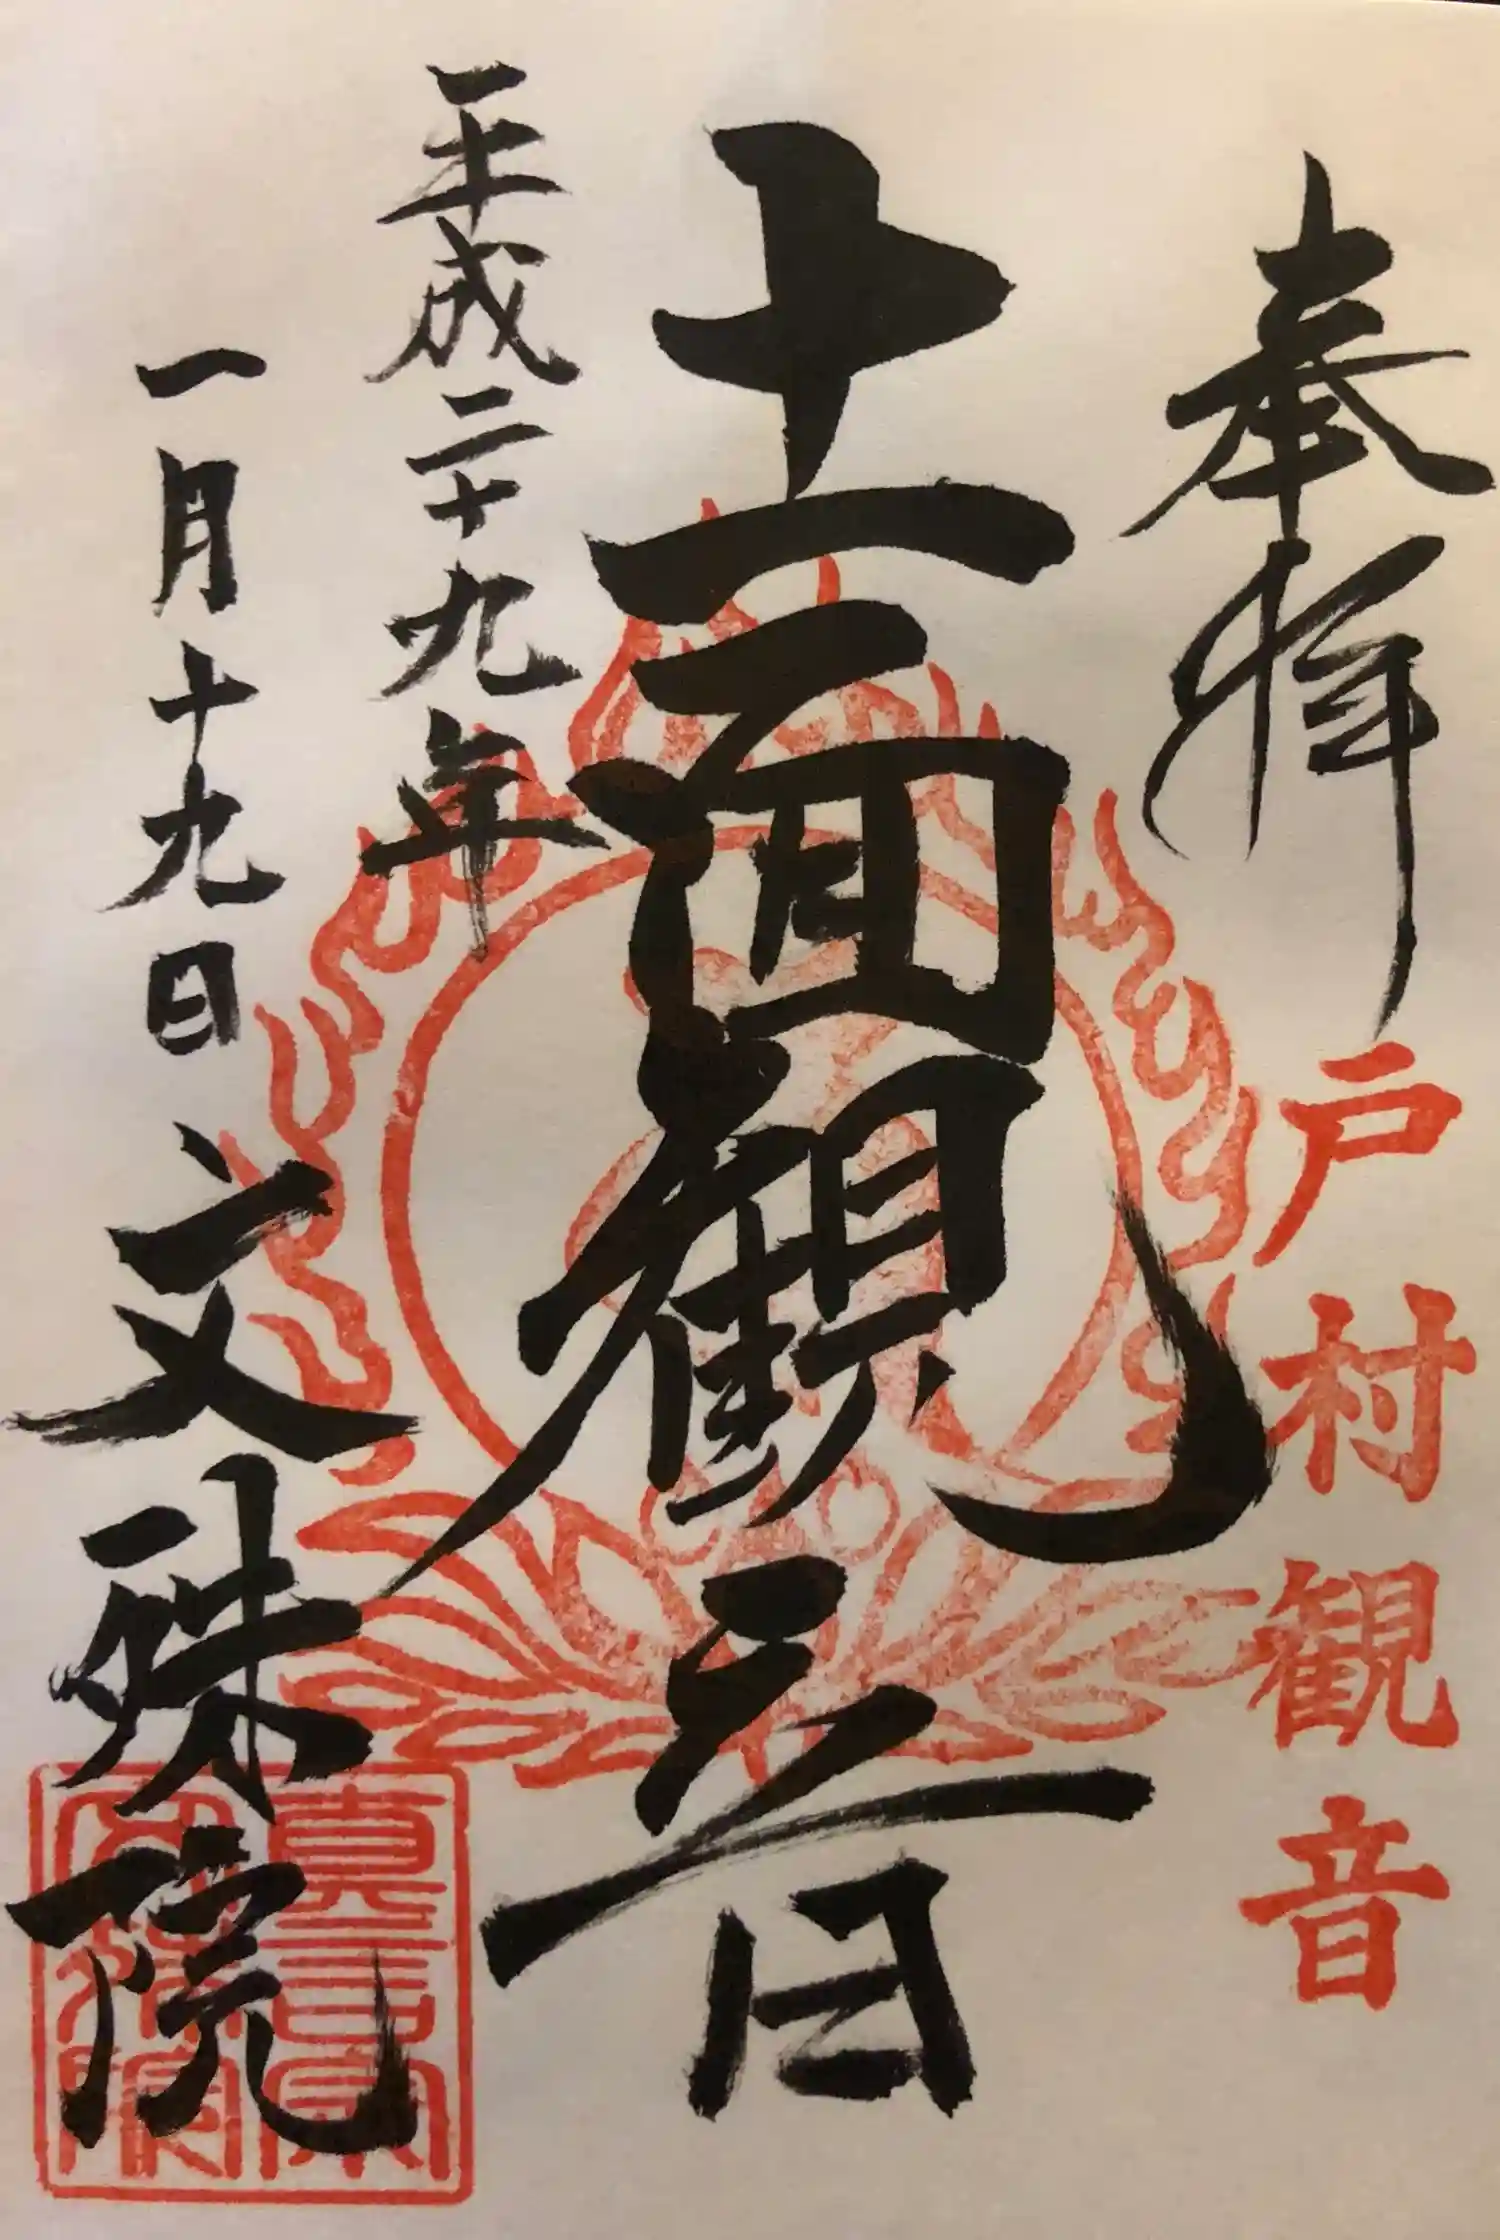 奉拝
戸村観音
十一面観音
平成二十九年
一月十九日
文殊院
真言宗
文殊院